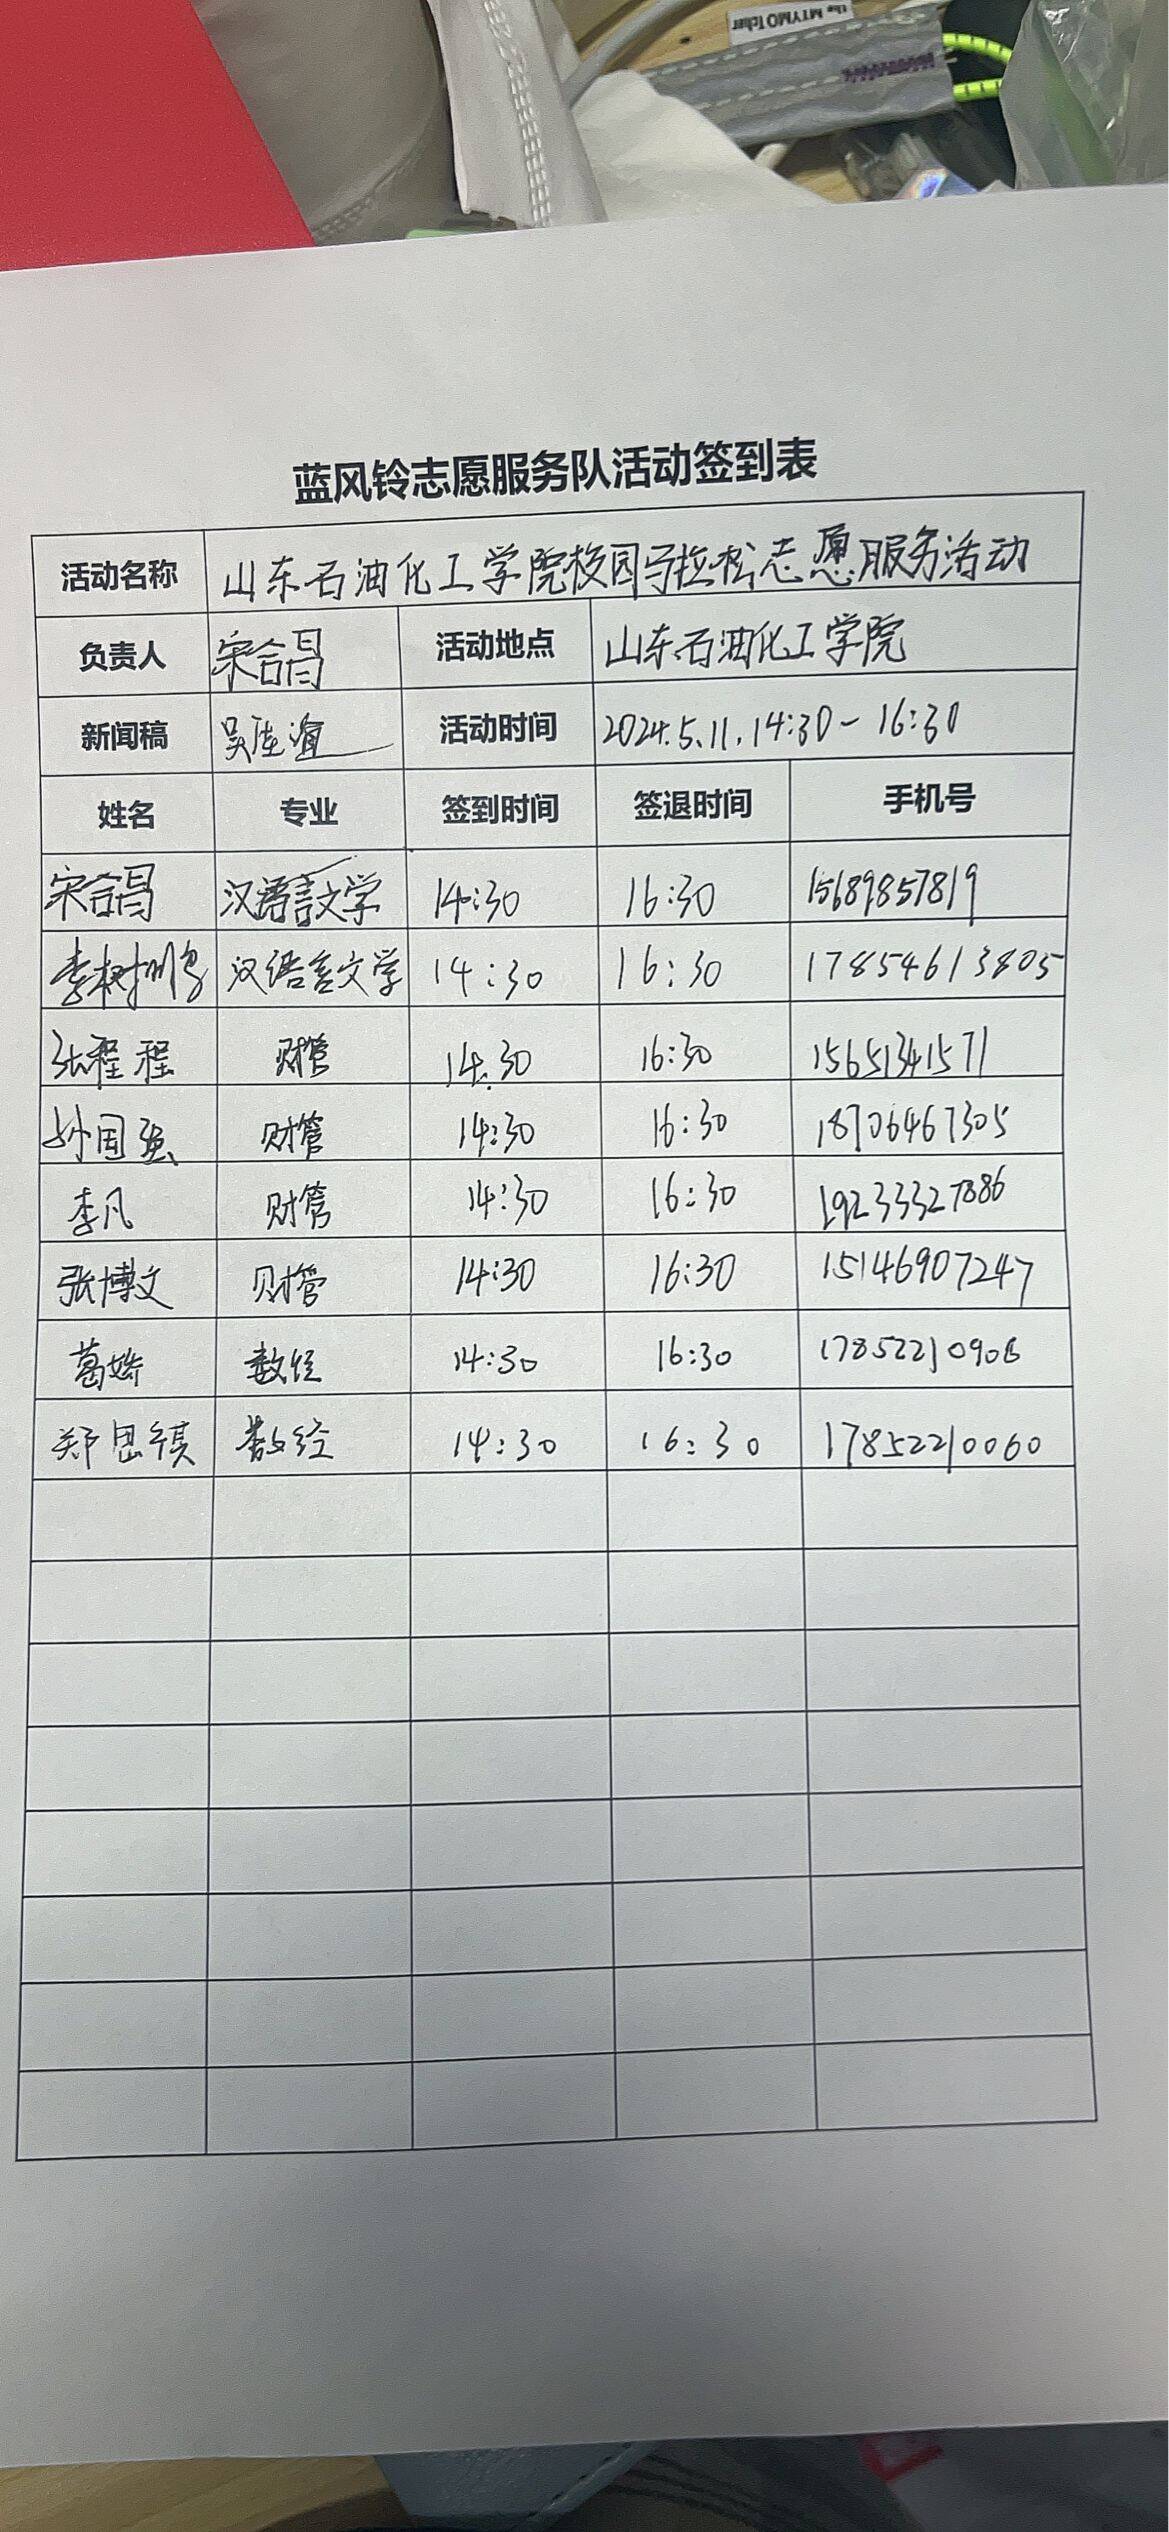 the MTYMOTcher
蓝风铃志愿服务队活动签到表
活动名称 山东石油化工学院校园马拉松志愿服务活动
负责人 宋合昌 活动地点 山东石油化工学院
新闻稿 吴 活动时间 2024.5.11.14:30-16:30
姓名 专业 签到时间 签退时间 手机号
宋合昌 汉语言文学 14:30 16:30 15689857819
李树 汉语言文学 14:30 16:30 17854613805
张程程 财管 14:30 16:30 15651341571
孙国强 财管 14:30 16:30 18706467305
李凡 财管 14:30 16:30 19233327886
张博文 财管 14:30 16:30 15146907247
葛娇 数经 14:30 16:30 17852210906
郑思祺 数经 14:30 16:30 17852210060